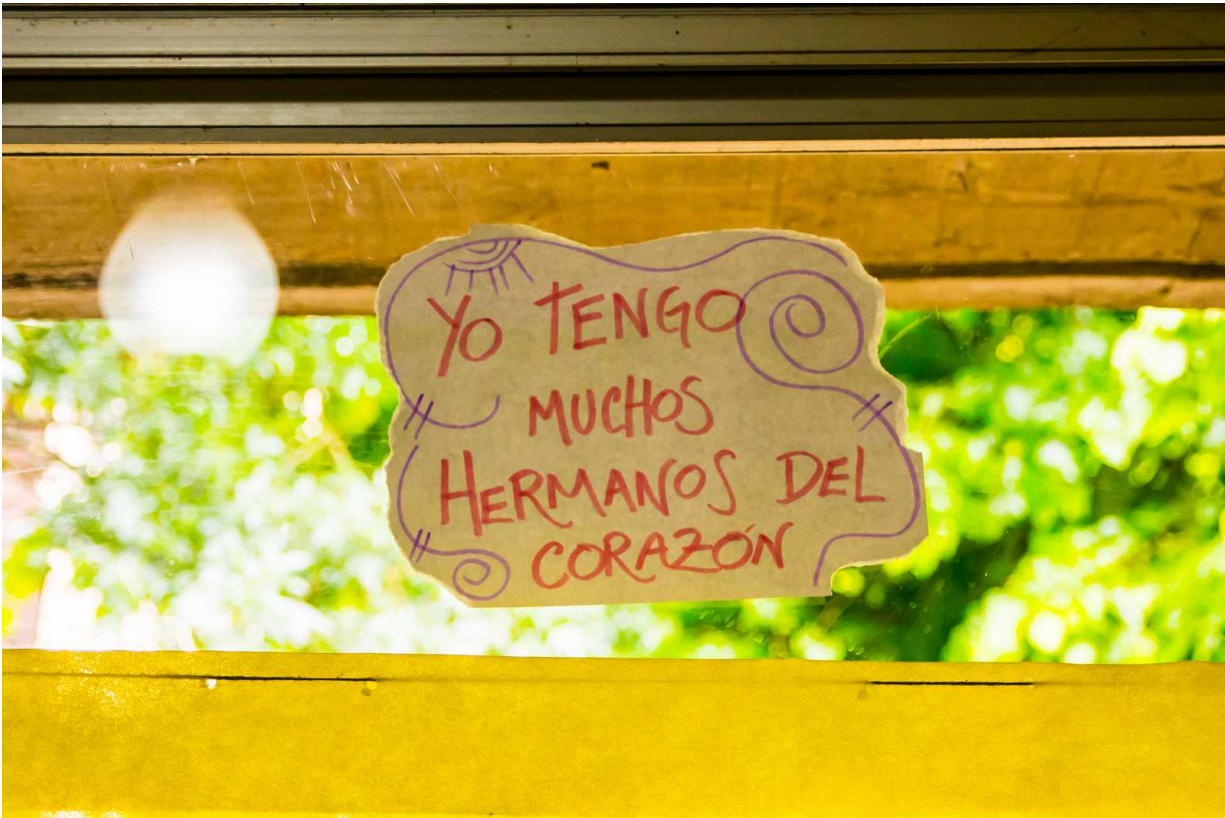 YO TENGO
MUCHOS
HERMANOS DEL
CORAZÓN